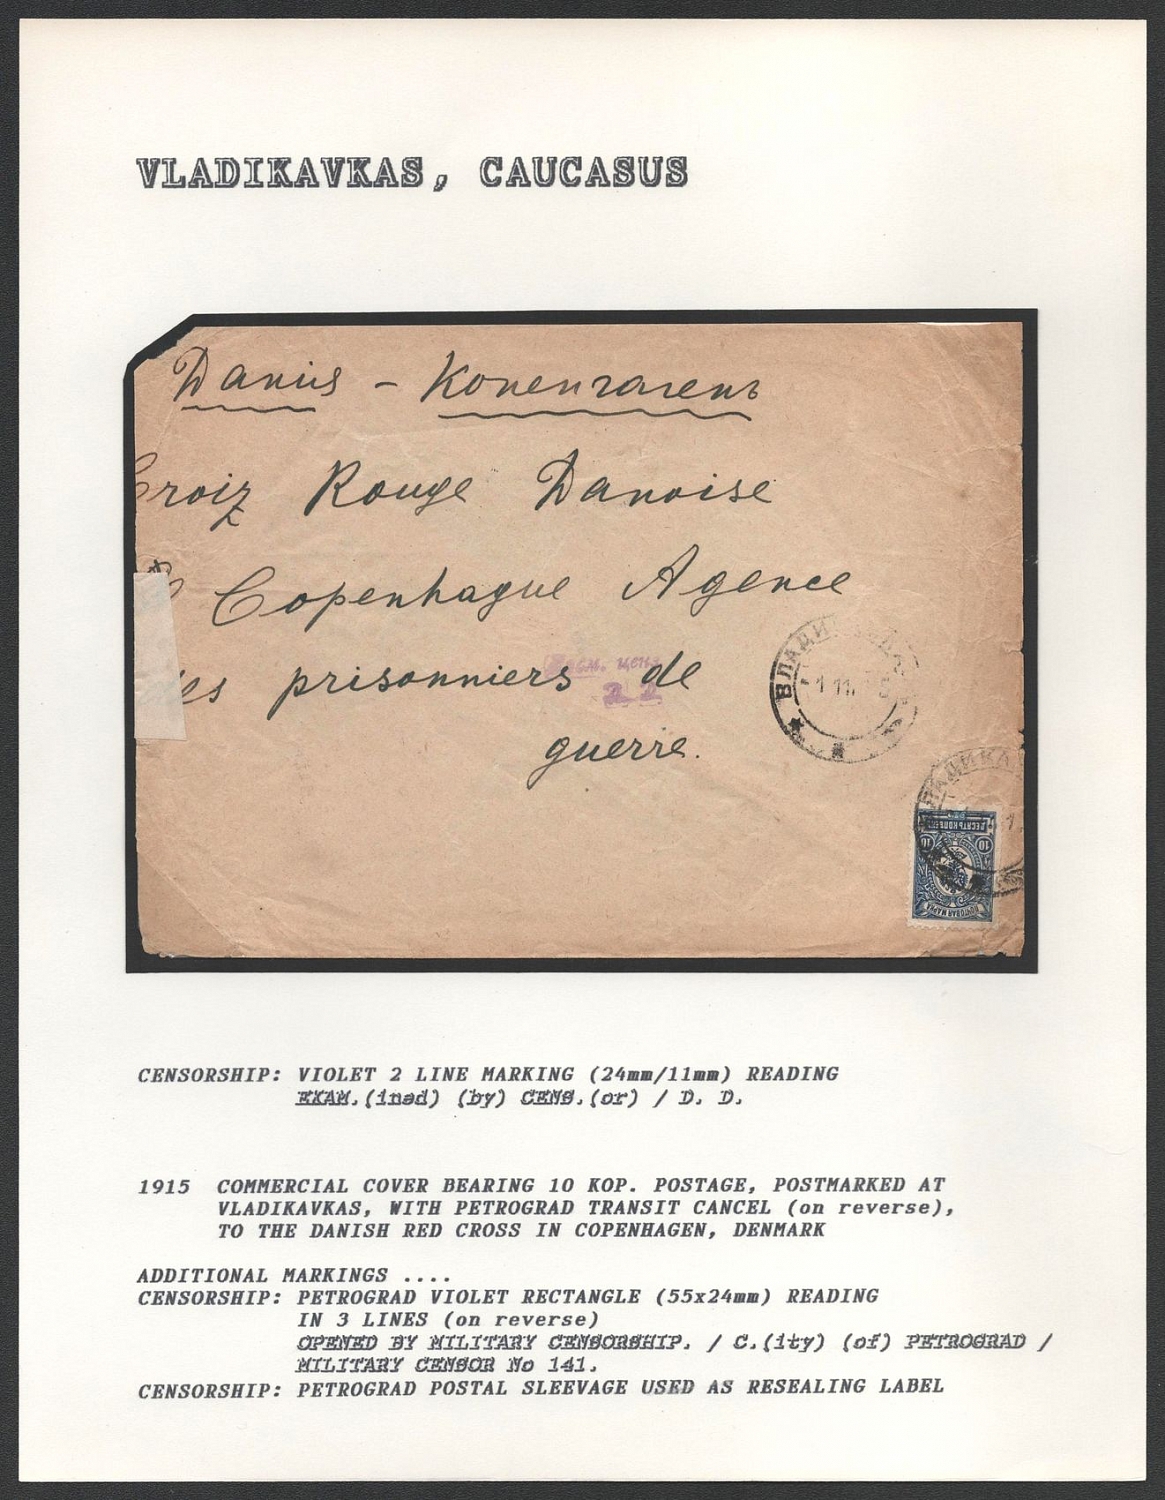 VLADIKAVKAS, CAUCASUS
Danis - Копенгагенъ
Croix Rouge Danoise
Copenhague Agence
des prisonniers de
guerre.
ценз.
Д. Д.
ВЛАДИ
ВЛАДИКА
ДЕСЯТЬ КОП
10 10
ПОЧТОВАЯ МАРКА
CENSORSHIP: VIOLET 2 LINE MARKING (24mm/11mm) READING
EXAM.(ined) (by) CENS.(or) / D. D.
1915 COMMERCIAL COVER BEARING 10 KOP. POSTAGE, POSTMARKED AT
VLADIKAVKAS, WITH PETROGRAD TRANSIT CANCEL (on reverse),
TO THE DANISH RED CROSS IN COPENHAGEN, DENMARK
ADDITIONAL MARKINGS ....
CENSORSHIP: PETROGRAD VIOLET RECTANGLE (55x24mm) READING
IN 3 LINES (on reverse)
OPENED BY MILITARY CENSORSHIP. / C.(ity) (of) PETROGRAD /
MILITARY CENSOR No 141.
CENSORSHIP: PETROGRAD POSTAL SLEEVAGE USED AS RESEALING LABEL